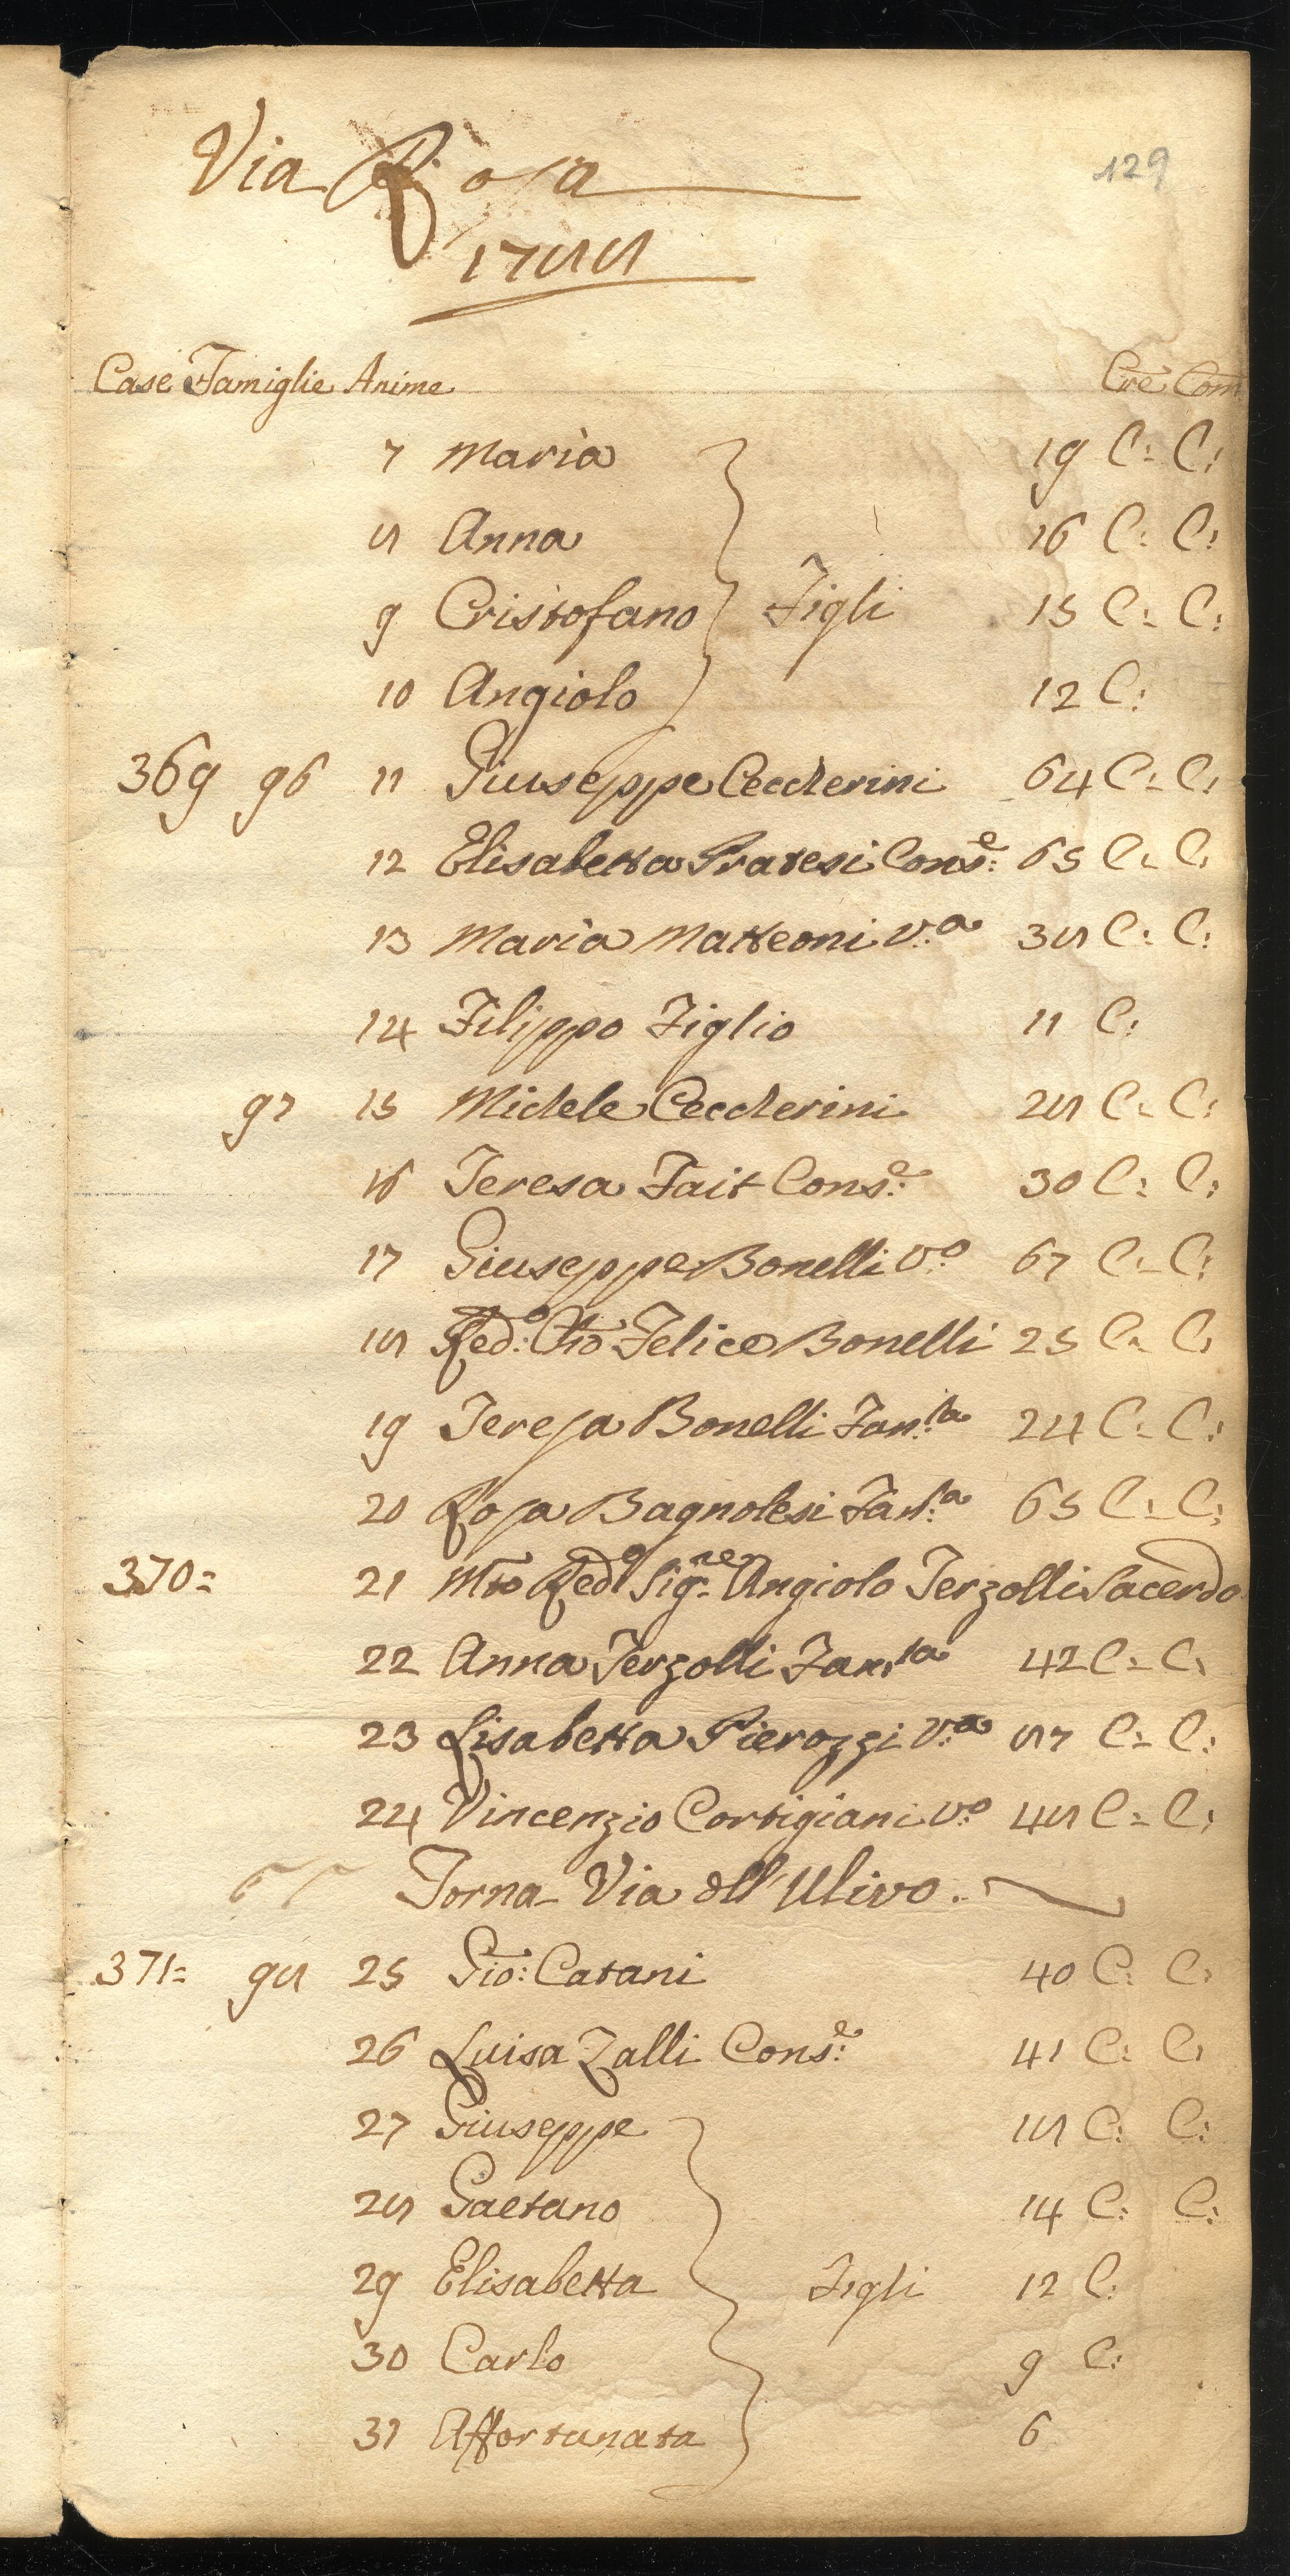 129
Via Rosa
1788
Case Famiglie Anime Cre Com
7 Maria 19 C: C:
8 Anna 16 C: C:
9 Cristofano Figli 15 C: C:
10 Angiolo 12 C:
369 96 11 Giuseppe Ceccherini 64 C: C:
12 Elisabetta Pratesi Cons:e 65 C: C:
13 Maria Matteoni V:a 38 C: C:
14 Filippo Figlio 11 C:
97 15 Michele Ceccherini 28 C: C:
16 Teresa Fait Cons:e 30 C: C:
17 Giuseppe Bonelli V:o 67 C: C:
18 Red:o Felice Bonelli 25 C: C:
19 Teresa Bonelli Fan:la 24 C: C:
20 Rosa Bagnolesi Fan:la 65 C: C:
370= 21 Mto Redo Sig:re Angiolo Terzolli Sacerdo
22 Anna Terzolli Fan:la 42 C: C:
23 Lisabetta Pierozzi V:a 87 C: C:
24 Vincenzio Cortigiani V:o 48 C: C:
Torna Via dell'Ulivo.
371= 98 25 Gio: Catani 40 C: C:
26 Luisa Zalli Cons:e 41 C: C:
27 Giuseppe 18 C: C:
28 Gaetano 14 C: C:
29 Elisabetta Figli 12 C:
30 Carlo 9 C:
31 Affortunata 6